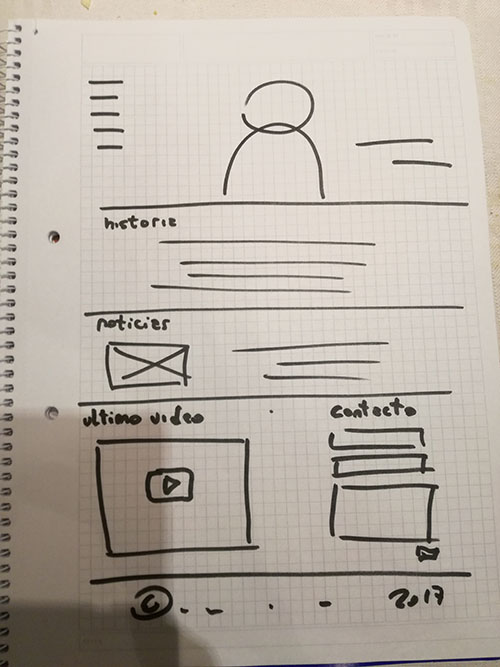 historia
noticias
ultimo video
contacto
© 2017